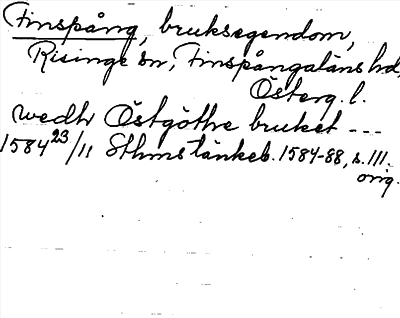 Finspång, bruksegendom,
Risinge sn, Finspångaläns hd,
Österg. l.
wedh Östgöthe bruket ---
1584 23/11 Sthms tänkeb. 1584-88, s. 111.
orig.